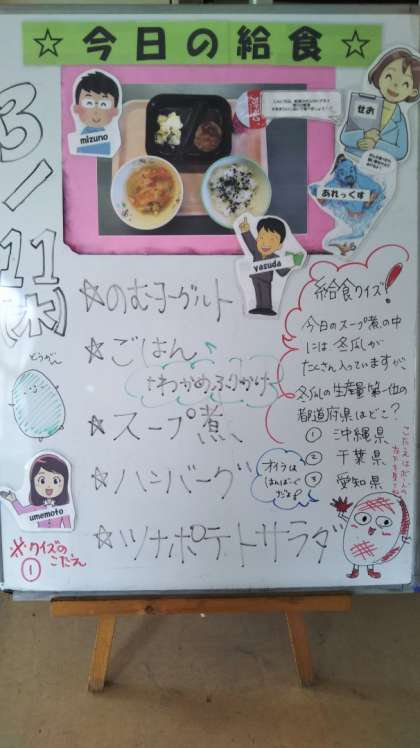 ☆今日の給食☆
mizuno
せお
あれっくす
yasuda
3/11(木)
☆のむヨーグルト
☆ごはん
+わかめふりかけ
☆スープ煮
☆ハンバーグ
☆ツナポテトサラダ
とうがん
umemoto
※クイズの
こたえ
①
給食クイズ!
今日のスープ煮の中
には冬瓜が
たくさん入っていますが、
冬瓜の生産量第一位の
都道府県はどこ?
① 沖縄県
② 千葉県
③ 愛知県
オイラは
はんばーぐ
だよ